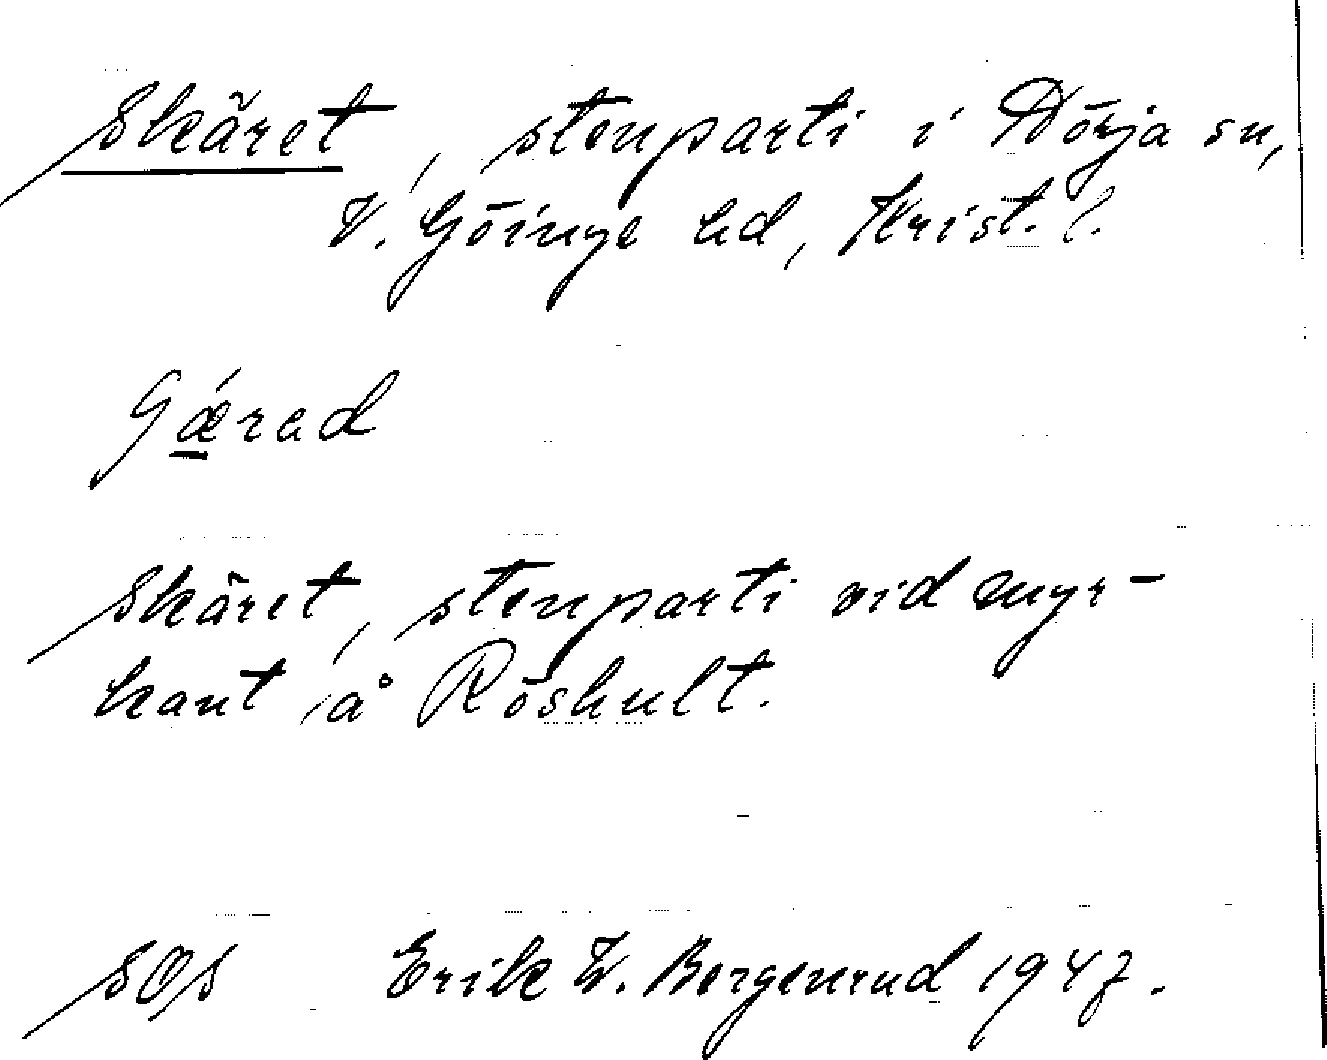 Skäret, stenparti i Nörja sn,
V. Göinge hd, Krist. l.
Skäret, stenparti vid myr-
kant å Röshult.
SOS Erik W. Bergenrud 1947.